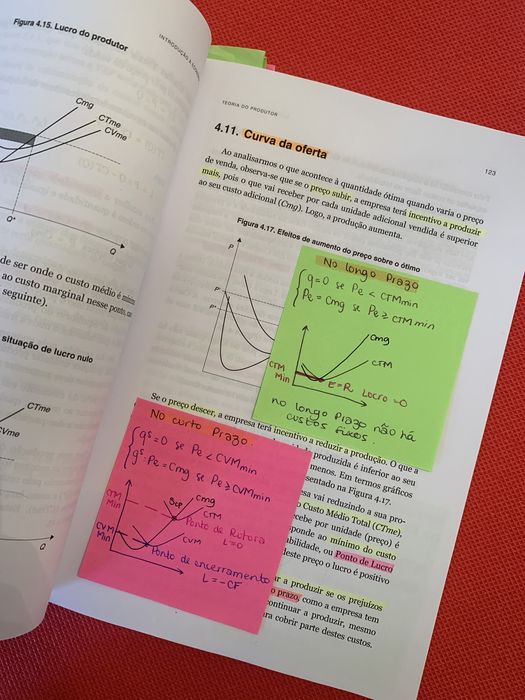 Figura 4.15. Lucro do produtor
Cmg
CTme
CVme
Q*
Q
de ser onde o custo médio é
ao custo marginal nesse ponto,
seguinte).
situação de lucro nulo
CTme
Vme
Q
TEORIA DO PRODUTOR
123
4.11. Curva da oferta
Ao analisarmos o que acontece à quantidade ótima quando varia o preço
de venda, observa-se que se o preço subir, a empresa terá incentivo a produzir
mais, pois o que vai receber por cada unidade adicional vendida é superior
ao seu custo adicional (Cmg). Logo, a produção aumenta.
Figura 4.17. Efeitos de aumento do preço sobre o ótimo
P
No longo prazo
q=0 se Pe < CTMmin
Pe = Cmg se Pe ≥ CTM min
Cmg
CTM
CTM
Min
E=R Lucro =0
no longo prazo não há
custos fixos.
Se o preço descer, a empresa terá incentivo a reduzir a produção. O que a
produzida é inferior ao seu
menos. Em termos gráficos
sentado na Figura 4.17.
esa vai reduzindo a sua pro-
o Custo Médio Total (CTme),
ecebe por unidade (preço) é
ponde ao mínimo do custo
abilidade, ou Ponto de Lucro
deste preço o lucro é positivo
No curto Prazo.
qs=0 se Pe < CVMmin
qs: Pe = Cmg se Pe ≥ CVMmin
CTM
Min
Scp
Cmg
CTM
Ponto de Rutura
L=0
CVM
Min
CVM
Ponto de encerramento
L = -CF
ar a produzir se os prejuízos
o prazo, como a empresa tem
continuar a produzir, mesmo
ra cobrir parte destes custos.